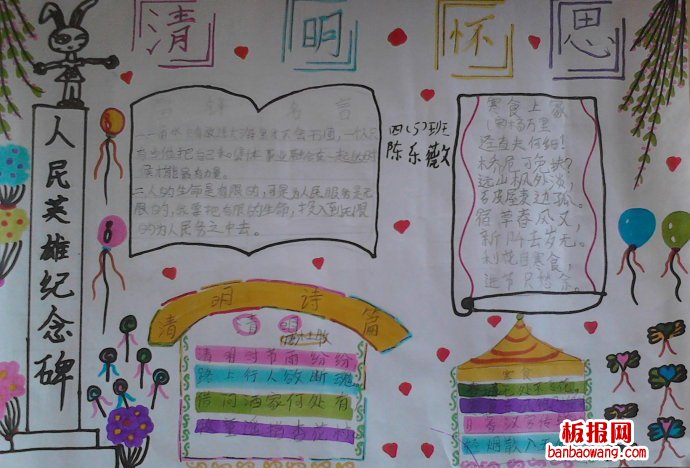 清 明 怀 思
人民英雄纪念碑
雷锋名言
一个人只有当他把自己和集体事业融合在一起的时候才能最有力量。
二、人的生命是有限的，可是为人民服务是无
限的，我要把有限的生命，投入到无限
的为人民服务之中去。
四(5)班
陈东薇
寒食上冢
(宋)杨万里
迳直夫何细!
桥危可免扶?
远山枫外淡,
宿草春风又,
新阡去岁无。
梨花自寒食,
进节只愁余。
清明诗篇
清明
杜牧
清明时节雨纷纷
路上行人欲断魂
借问酒家何处有
寒食
板报网
banbaowang.com